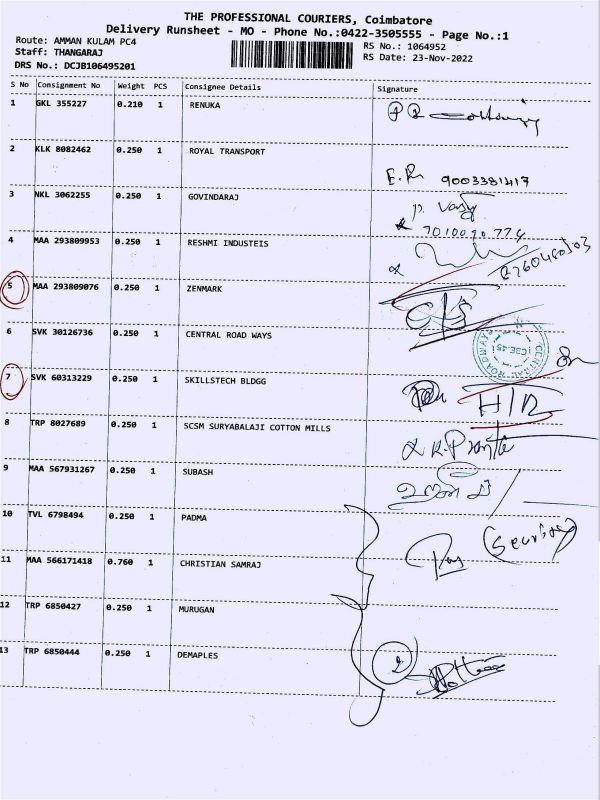 THE PROFESSIONAL COURIERS, Coimbatore
Delivery Runsheet - MO - Phone No.:0422-3505555 - Page No.:1
Route: AMMAN KULAM PC4
RS No.: 1064952
Staff: THANGARAJ
RS Date: 23-Nov-2022
DRS No.: DCJB106495201
S No Consignment No Weight PCS Consignee Details Signature
1 GKL 355227 0.210 1 RENUKA
2 KLK 8082462 0.250 1 ROYAL TRANSPORT
E.R 9003381417
3 NKL 3062255 0.250 1 GOVINDARAJ
P.
4 MAA 293809953 0.250 1 RESHMI INDUSTEIS
5 MAA 293809076 0.250 1 ZENMARK
6 SVK 30126736 0.250 1 CENTRAL ROAD WAYS
CENTRAL ROADWAY
CBE-45
7 SVK 60313229 0.250 1 SKILLSTECH BLDGG
8 TRP 8027689 0.250 1 SCSM SURYABALAJI COTTON MILLS
9 MAA 567931267 0.250 1 SUBASH
10 TVL 6798494 0.250 1 PADMA
(Security)
11 MAA 566171418 0.760 1 CHRISTIAN SAMRAJ
12 TRP 6850427 0.250 1 MURUGAN
13 TRP 6850444 0.250 1 DEMAPLES
2